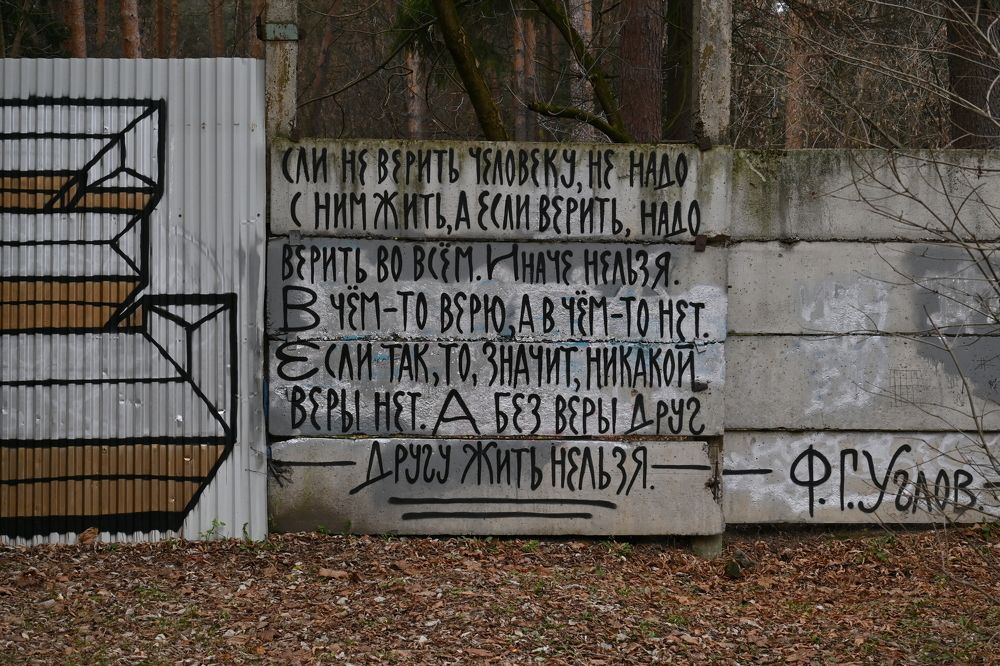 сли не верить человеку, не надо
с ним жить, а если верить, надо
верить во всём. Иначе нельзя.
В чём-то верю, а в чём-то нет.
Если так, то, значит, никакой
веры нет. А без веры друг
другу жить нельзя.
Ф.Г.Углов